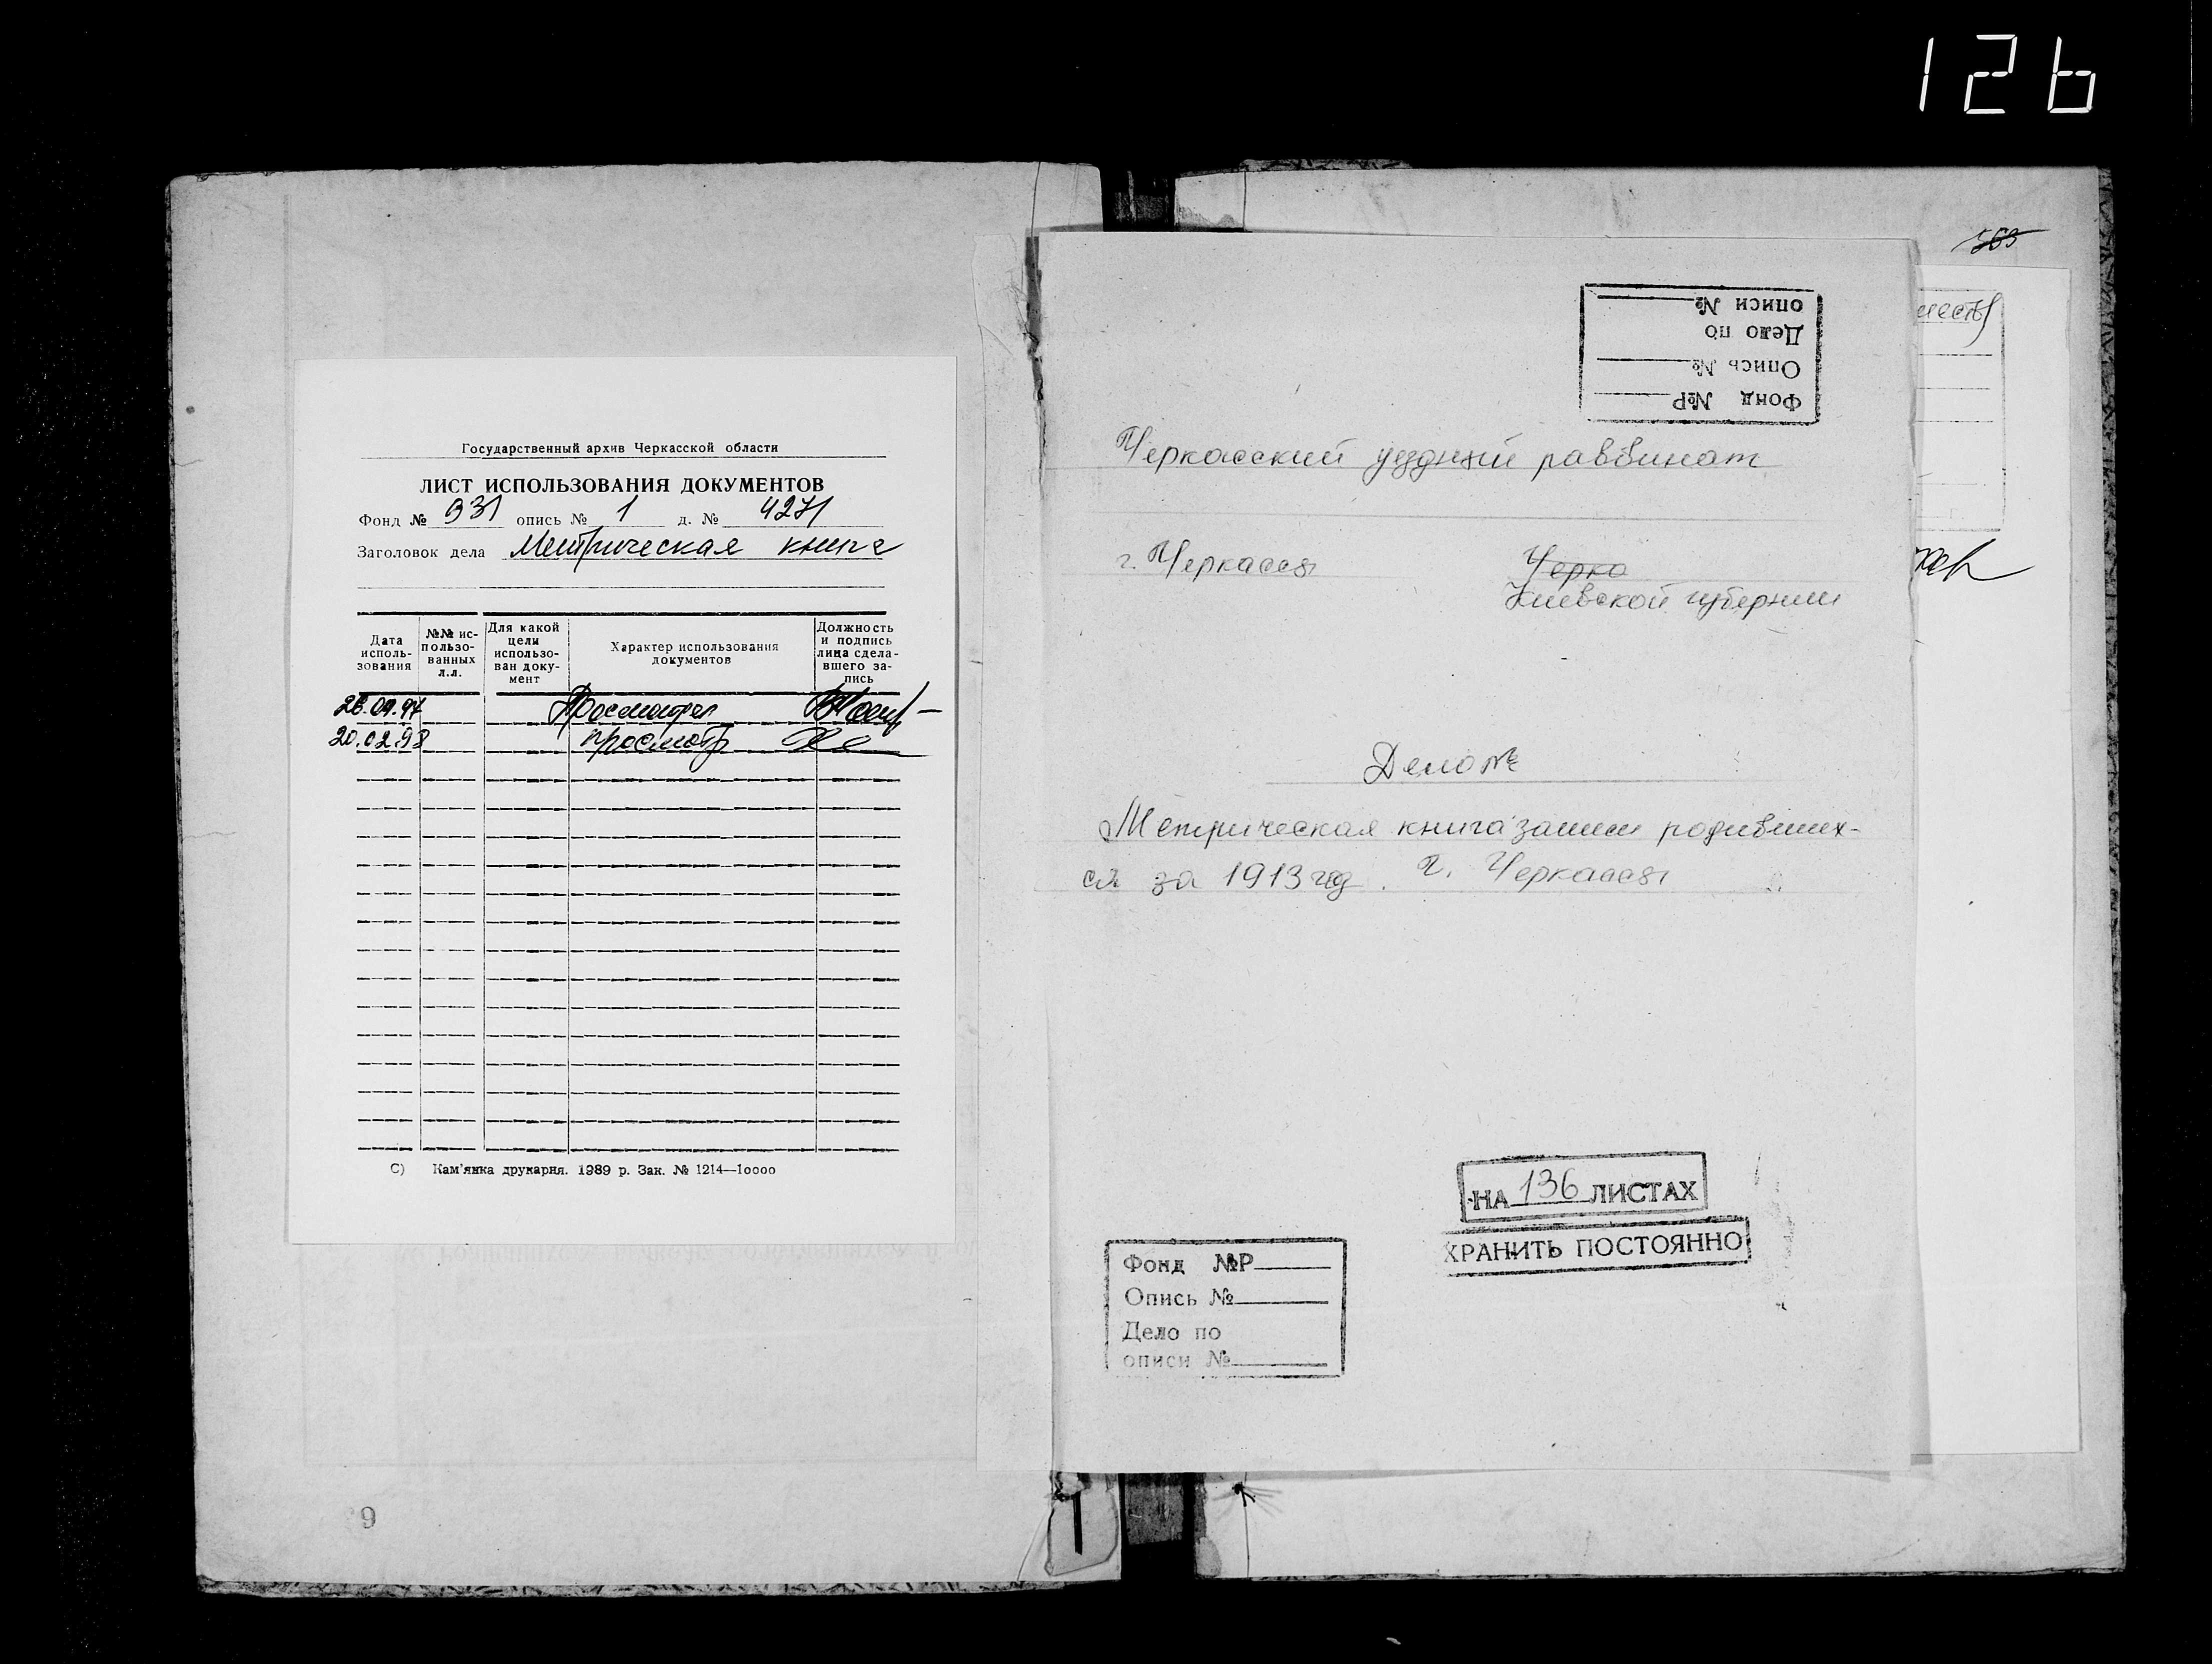 126
Государственный архив Черкасской области
ЛИСТ ИСПОЛЬЗОВАНИЯ ДОКУМЕНТОВ
Фонд № 931 опись № 1 д. № 4271
Заголовок дела Метрическая книга
Дата исполь-зования
№№ ис-пользо-ванных л.л.
Для какой цели использо-ван доку-мент
Характер использования документов
Должность и подпись лица сдела-вшего за-пись
26.09.97
20.02.98 просмотр
С) Кам'янка друкарня. 1989 р. Зак. № 1214—10000
9
363
Фонд №Р
Опись №
Дело по
описи №
Черкасский уездный раввинат
г. Черкассы Черка
Киевской губернии
Дело №
Метрическая книга записи родивших-
ся за 1913 год. г. Черкассы
НА 136 ЛИСТАХ
ХРАНИТЬ ПОСТОЯННО
Фонд №Р
Опись №
Дело по
описи №